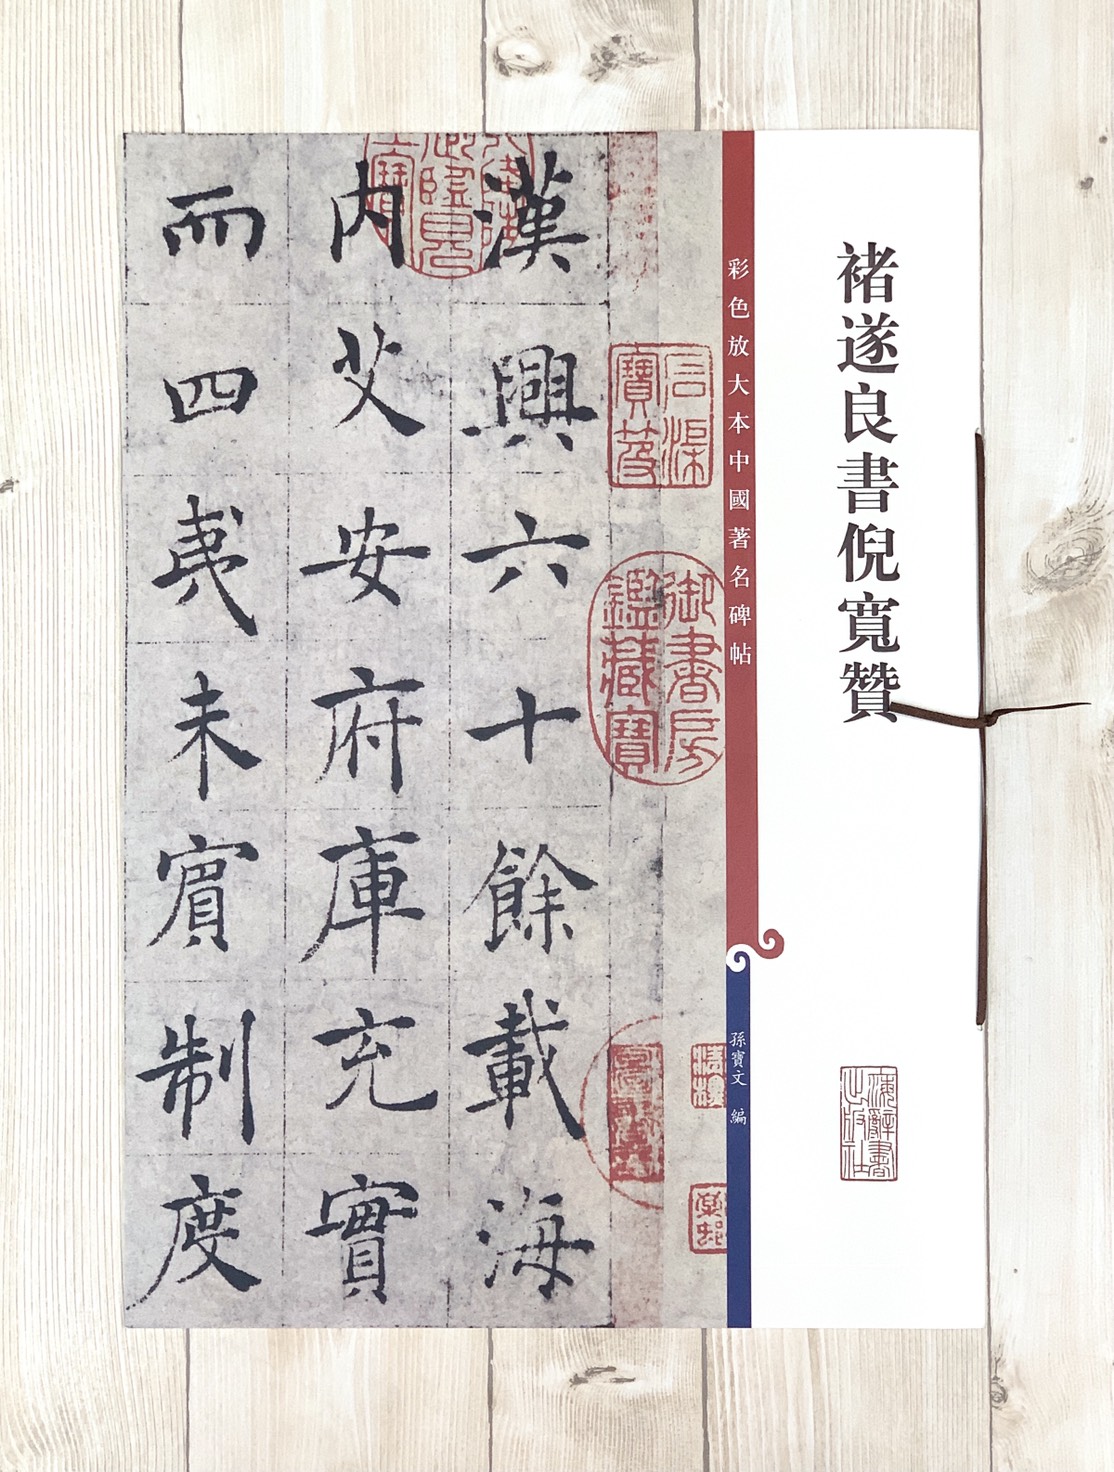 褚遂良書倪寬贊
海辭書
出版社
彩色放大本中國著名碑帖
孫寶文 編
漢興六十餘載海
內艾安府庫充實
而四夷未賓制度
石渠
寶笈
御書房
鑑藏寶